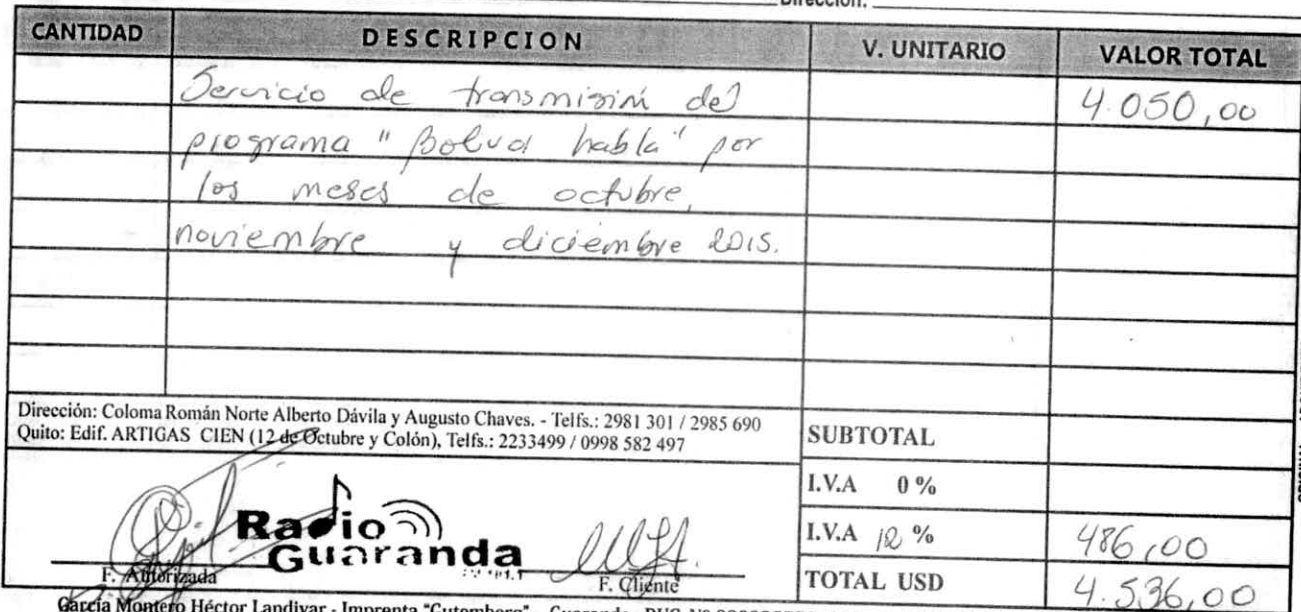 Dirección:
CANTIDAD DESCRIPCION V. UNITARIO VALOR TOTAL
Servicio de transmisión del 4.050,00
programa "Bolivar habla" por
los meses de octubre,
noviembre y diciembre 2015.
Dirección: Coloma Román Norte Alberto Dávila y Augusto Chaves. - Telfs.: 2981 301 / 2985 690
Quito: Edif. ARTIGAS CIEN (12 de Octubre y Colón), Telfs.: 2233499 / 0998 582 497
SUBTOTAL
I.V.A 0 %
I.V.A 12 % 486,00
TOTAL USD 4.536,00
Radio
Guaranda
F. Autorizada F. Cliente
García Montero Héctor Landivar - Imprenta "Gutemberg" - Guaranda